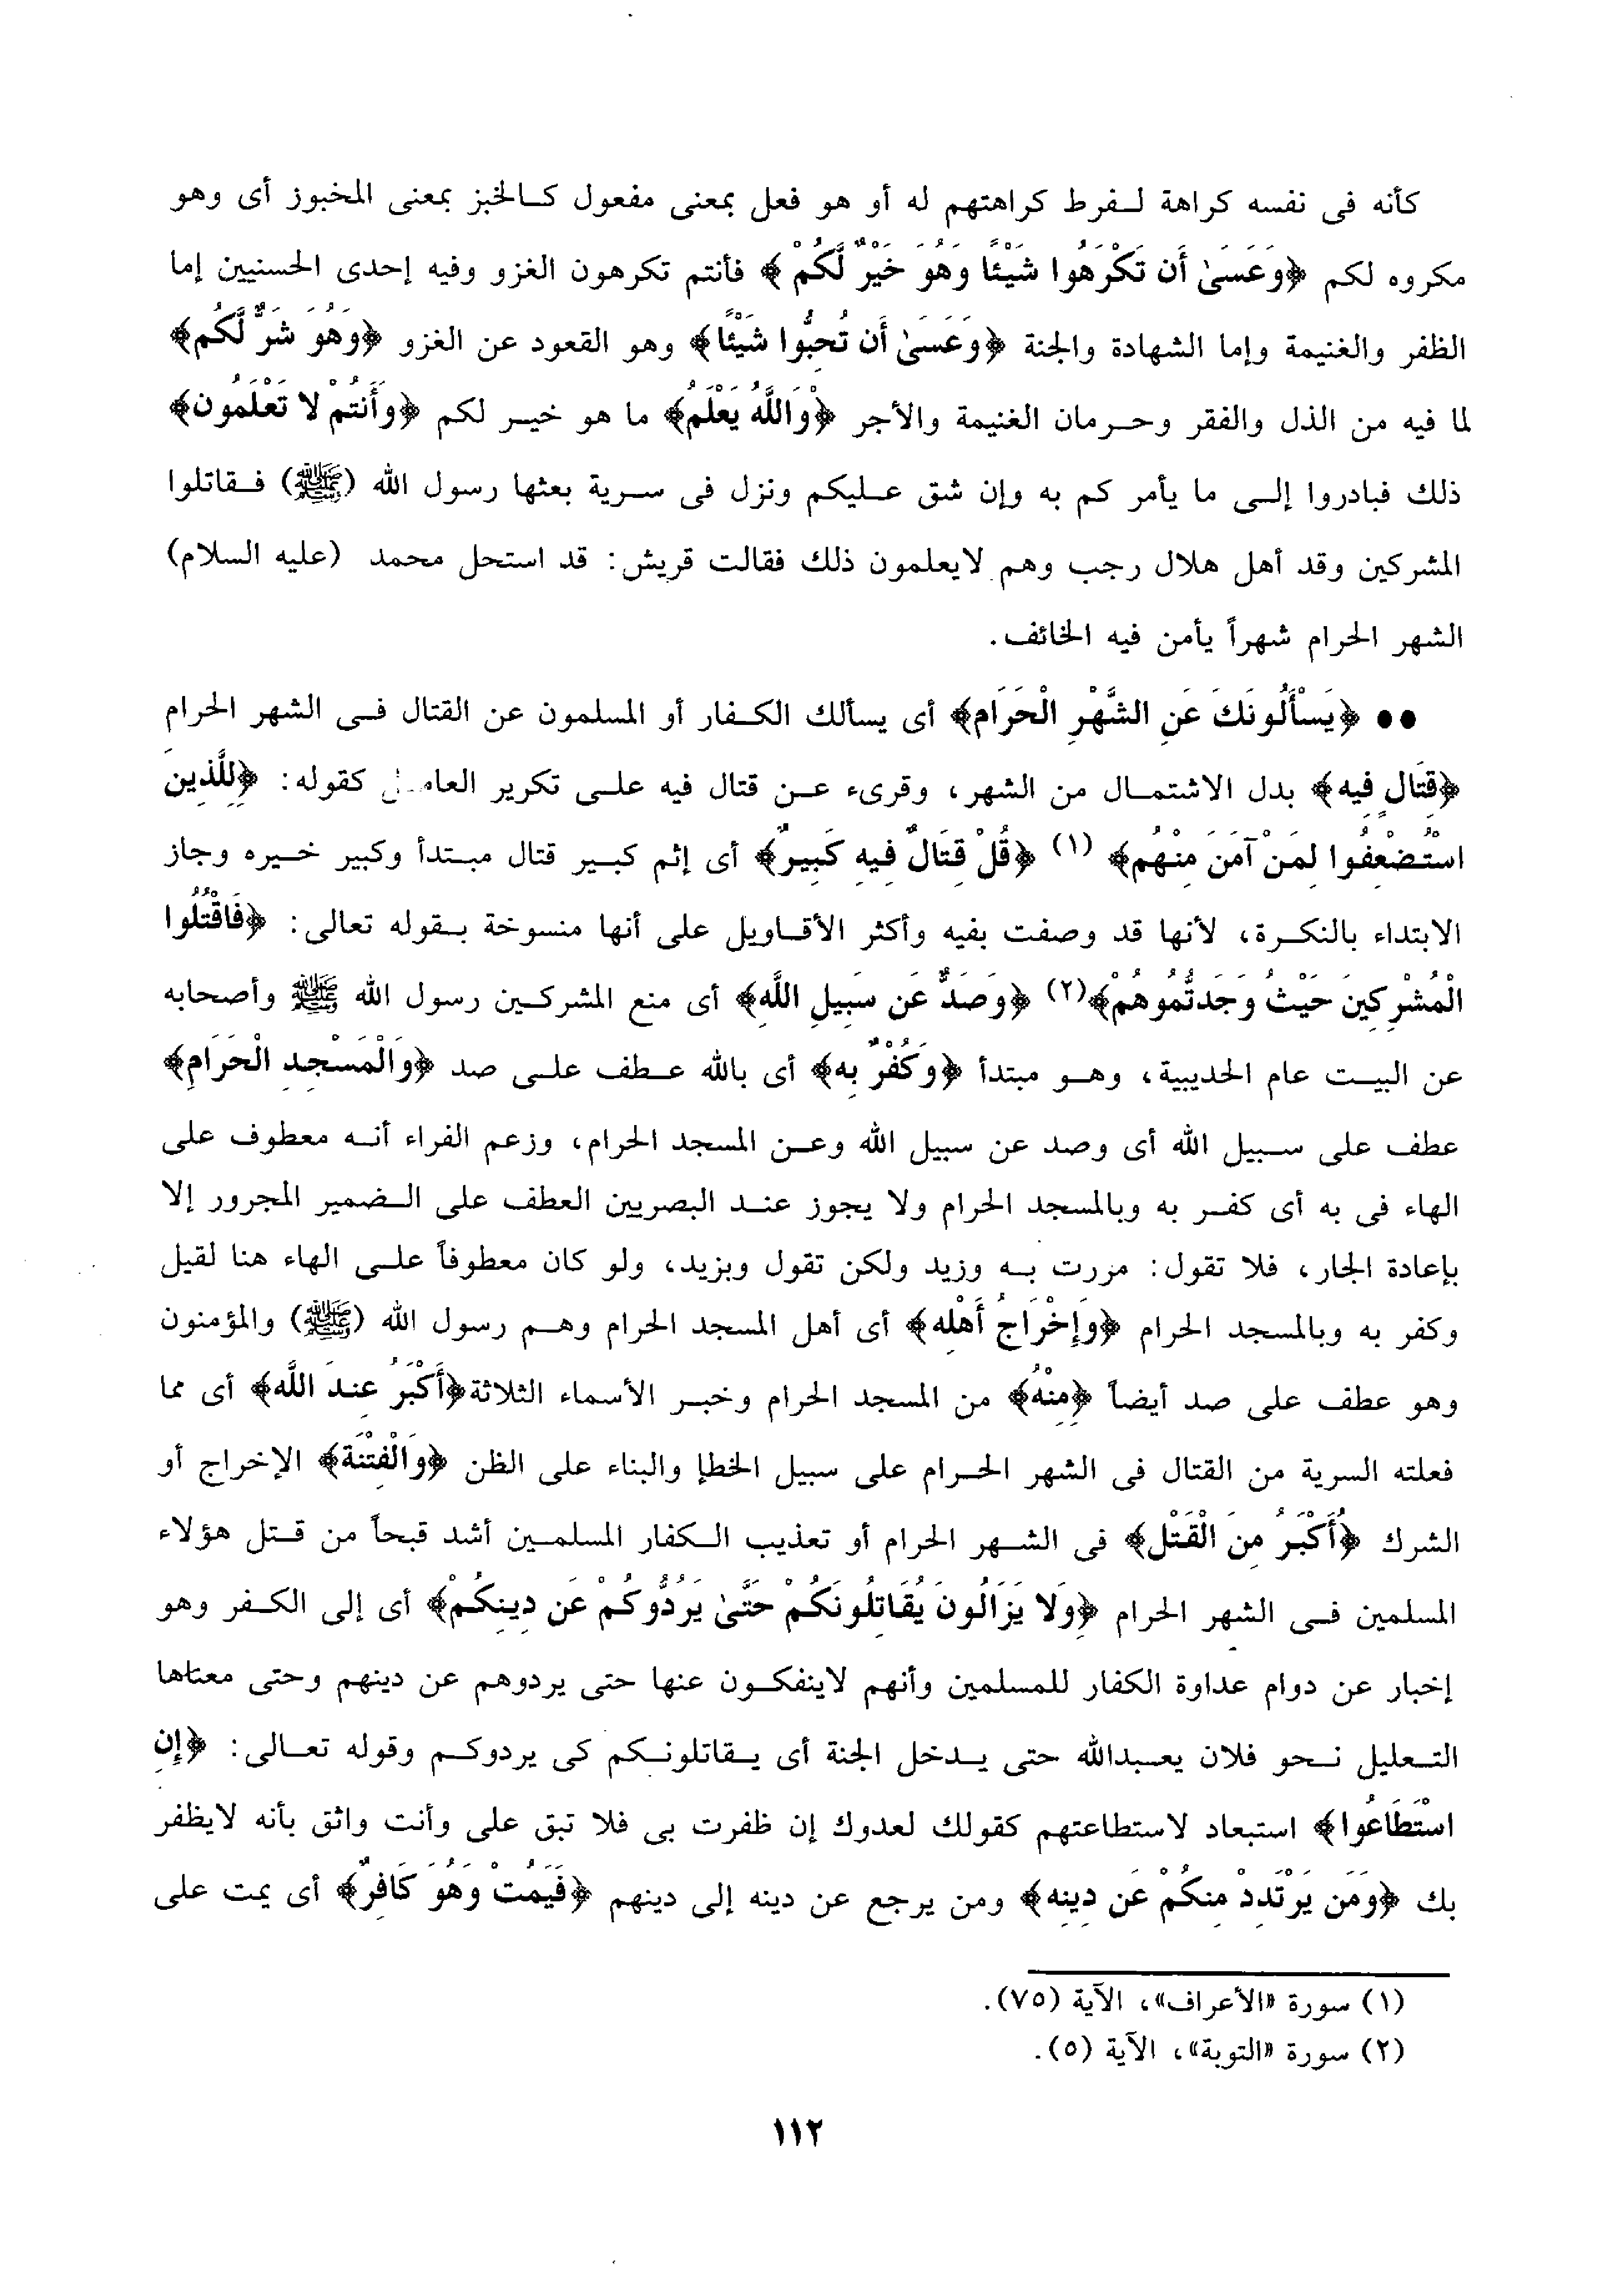 كأنه فى نفسه كراهة لـفرط كراهتهم له أو هو فعل بمعنى مفعول كـالخبز بمعنى المخبوز أى وهو
مكروه لكم ﴿وَعَسَىٰ أَن تَكْرَهُوا شَيْئًا وَهُوَ خَيْرٌ لَّكُمْ﴾ فأنتم تكرهون الغزو وفيه إحدى الحسنيين إما
الظفر والغنيمة وإما الشهادة والجنة ﴿وَعَسَىٰ أَن تُحِبُّوا شَيْئًا﴾ وهو القعود عن الغزو ﴿وَهُوَ شَرٌّ لَّكُم﴾
لما فيه من الذل والفقر وحـرمان الغنيمة والأجر ﴿وَاللَّهُ يَعْلَمُ﴾ ما هو خيـر لكم ﴿وَأَنتُمْ لا تَعْلَمُون﴾
ذلك فبادروا إلـى ما يأمر كم به وإن شق عـليكم ونزل فى سـرية بعثها رسول الله (ﷺ) فـقاتلوا
المشركين وقد أهل هلال رجب وهم لايعلمون ذلك فقالت قريش: قد استحل محمد (عليه السلام)
الشهر الحرام شهراً يأمن فيه الخائف.
●● ﴿يَسْأَلُونَكَ عَنِ الشَّهْرِ الْحَرَامِ﴾ أى يسألك الكـفار أو المسلمون عن القتال فـى الشهر الحرام
﴿قِتَالٍ فِيهِ﴾ بدل الاشتمـال من الشهر، وقرىء عـن قتال فيه علـى تكرير العامل كقوله: ﴿لِلَّذِينَ
اسْتُضْعِفُوا لِمَنْ آمَنَ مِنْهُم﴾ (١) ﴿قُلْ قِتَالٌ فِيهِ كَبِيرٌ﴾ أى إثم كبـير قتال مبـتدأ وكبير خـيره وجاز
الابتداء بالنكـرة، لأنها قد وصفت بفيه وأكثر الأقـاويل على أنها منسوخة بـقوله تعالى: ﴿فَاقْتُلُوا
الْمُشْرِكِينَ حَيْثُ وَجَدتُّمُوهُمْ﴾(٢) ﴿وَصَدٌّ عَن سَبِيلِ اللَّهِ﴾ أى منع المشركـين رسول الله ﷺ وأصحابه
عن البيـت عام الحديبية، وهـو مبتدأ ﴿وَكُفْرٌ بِهِ﴾ أى بالله عـطف علـى صد ﴿وَالْمَسْجِدِ الْحَرَامِ﴾
عطف على سـبيل الله أى وصد عن سبيل الله وعـن المسجد الحرام، وزعم الفراء أنـه معطوف على
الهاء فى به أى كفـر به وبالمسجد الحرام ولا يجوز عنـد البصريين العطف على الـضمير المجرور إلا
بإعادة الجار، فلا تقول: مررت بـه وزيد ولكن تقول وبزيد، ولو كان معطوفاً علـى الهاء هنا لقيل
وكفر به وبالمسجد الحرام ﴿وَإِخْرَاجُ أَهْلِهِ﴾ أى أهل المسجد الحرام وهـم رسول الله (ﷺ) والمؤمنون
وهو عطف على صد أيضاً ﴿مِنْهُ﴾ من المسجد الحرام وخبـر الأسماء الثلاثة﴿أَكْبَرُ عِندَ اللَّهِ﴾ أى مما
فعلته السرية من القتال فى الشهر الحـرام على سبيل الخطإ والبناء على الظن ﴿وَالْفِتْنَة﴾ الإخراج أو
الشرك ﴿أَكْبَرُ مِنَ الْقَتْلِ﴾ فى الشـهر الحرام أو تعذيب الـكفار المسلمـين أشد قبحاً من قـتل هؤلاء
المسلمين فـى الشهر الحرام ﴿وَلا يَزَالُونَ يُقَاتِلُونَكُمْ حَتَّىٰ يَرُدُّوكُمْ عَن دِينِكُمْ﴾ أى إلى الكـفر وهو
إخبار عن دوام عداوة الكفار للمسلمين وأنهم لاينفكـون عنها حتى يردوهم عن دينهم وحتى معناها
التـعليل نـحو فلان يعـبدالله حتى يـدخل الجنة أى يـقاتلونـكم كى يردوكـم وقوله تعـالى: ﴿إِنِ
اسْتَطَاعُوا﴾ استبعاد لاستطاعتهم كقولك لعدوك إن ظفرت بى فلا تبق على وأنت واثق بأنه لايظفر
بك ﴿وَمَن يَرْتَدِدْ مِنكُمْ عَن دِينِهِ﴾ ومن يرجع عن دينه إلى دينهم ﴿فَيَمُتْ وَهُوَ كَافِرٌ﴾ أى يمت على
(١) سورة «الأعراف»، الآية (٧٥).
(٢) سورة «التوبة»، الآية (٥).
١١٢